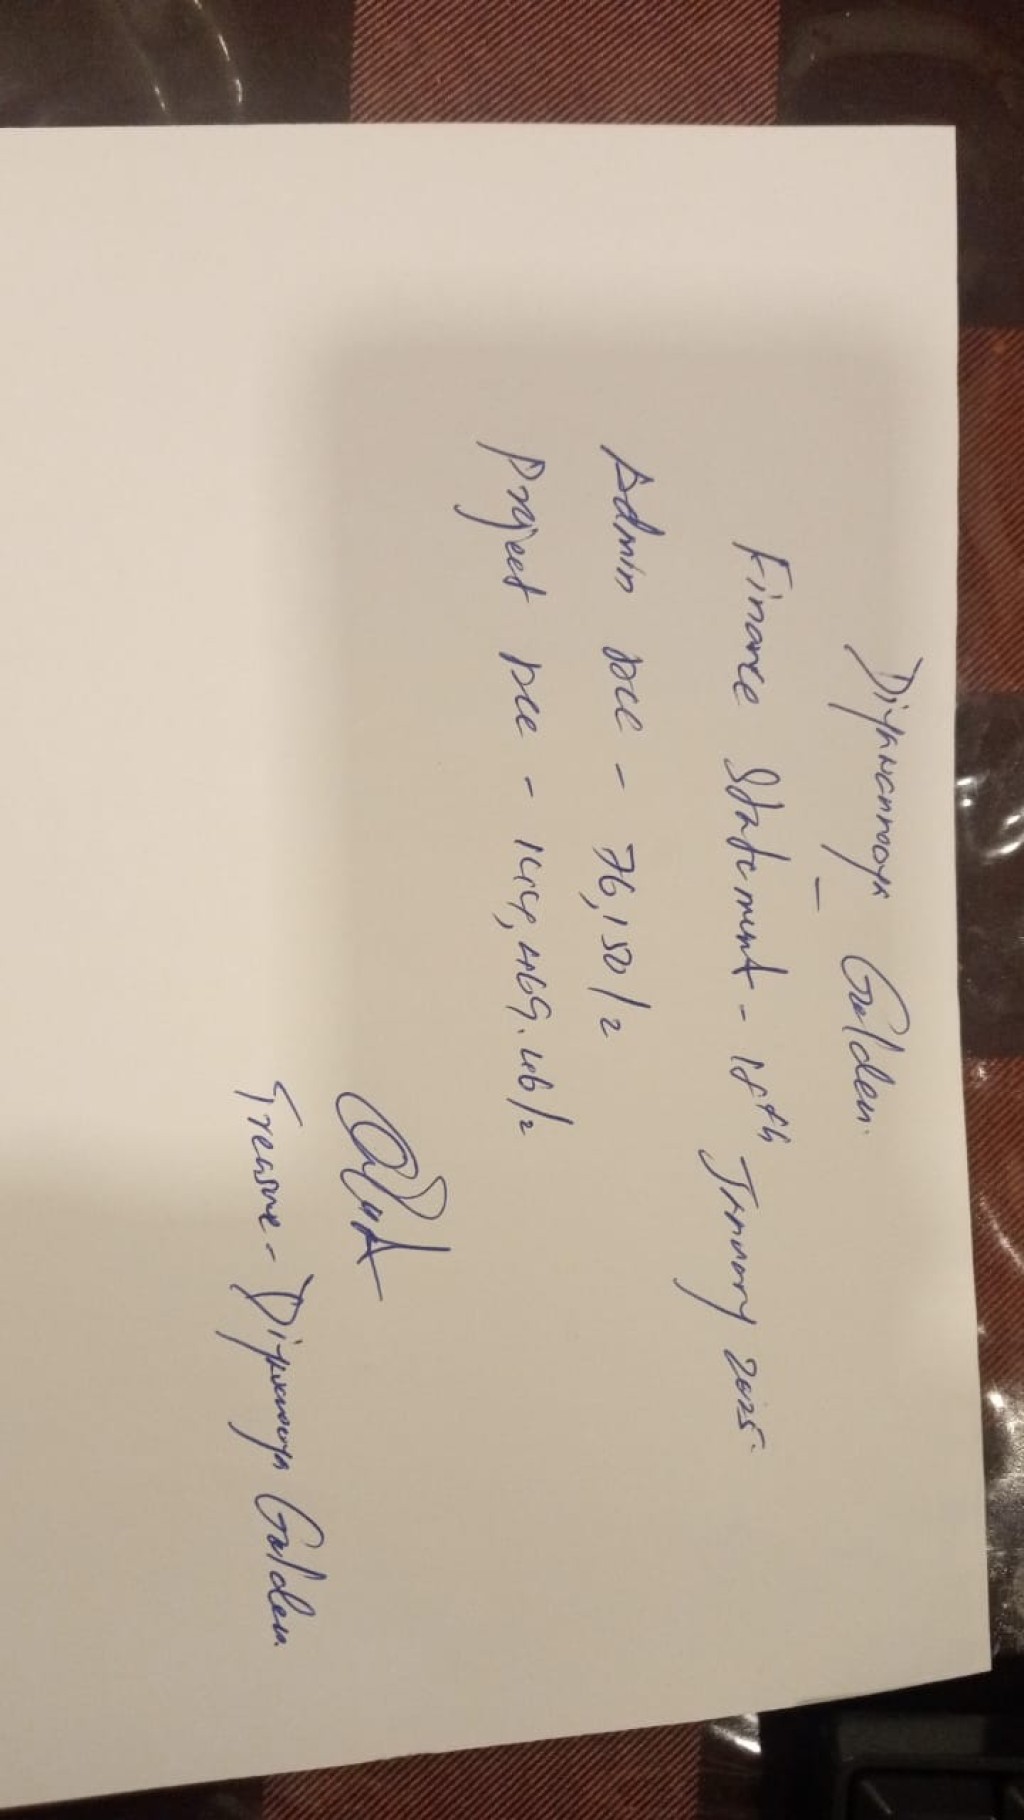 Diyawannaoya Golden.
Finance Statement - 18th January 2025.
Admin Acc - 76,150/=
Project Acc - 144,469.46/=
Treasure - Diyawanaoya Golden